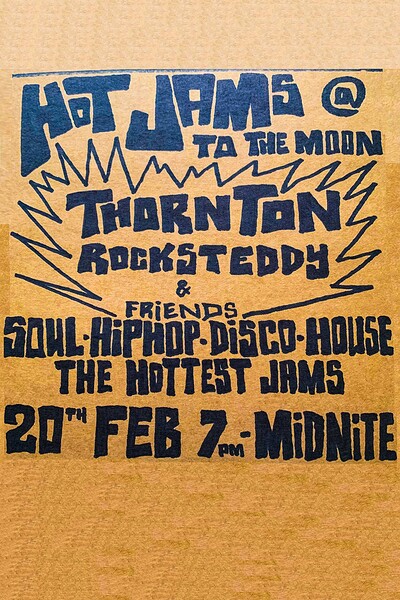 HOT JAMS @
TO THE MOON
THORNTON
ROCKSTEDDY
&
FRIENDS
SOUL·HIPHOP·DISCO·HOUSE
THE HOTTEST JAMS
20TH FEB 7PM-MIDNITE